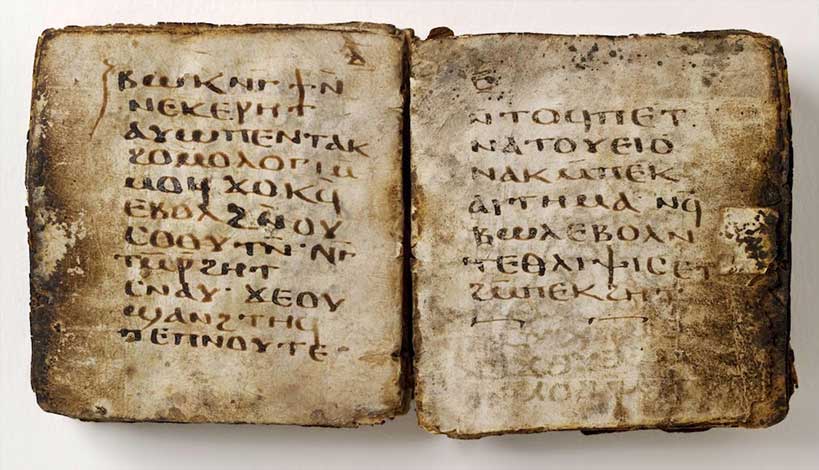 ⲃⲱⲕⲛ̄ⲅϯⲛ̄
ⲛⲉⲕⲉⲣⲏⲧ
ⲁⲩⲱⲡⲉⲛⲧⲁⲕ
ϩⲟⲙⲟⲗⲟⲅⲓⲁ
ⲙⲟϥϫⲟⲕϥ
ⲉⲃⲟⲗϩⲛ̄ⲟⲩ
ⲥⲟⲟⲩⲧⲛ̄·ⲛ̄ⲅ
ⲧⲙ̄ⲣ̄ϩⲏⲧ
ⲥⲛⲁⲩ·ϫⲉⲟⲩ
ϣⲁⲛϩⲧⲏϥ
ⲡⲉⲡⲛⲟⲩⲧⲉ
ⲛⲧⲟϥⲡⲉⲧ
ⲛⲁⲧⲟⲩⲉⲓⲟ
ⲛⲁⲕⲙ̄ⲡⲉⲕ
ⲁⲓⲧⲏⲙⲁⲛϥ̄
ⲃⲱⲗⲉⲃⲟⲗⲛ
ⲧⲉⲑⲗⲓⲯⲓⲥⲉⲧ
ϩⲙ̄ⲡⲉⲕϩⲏⲧ